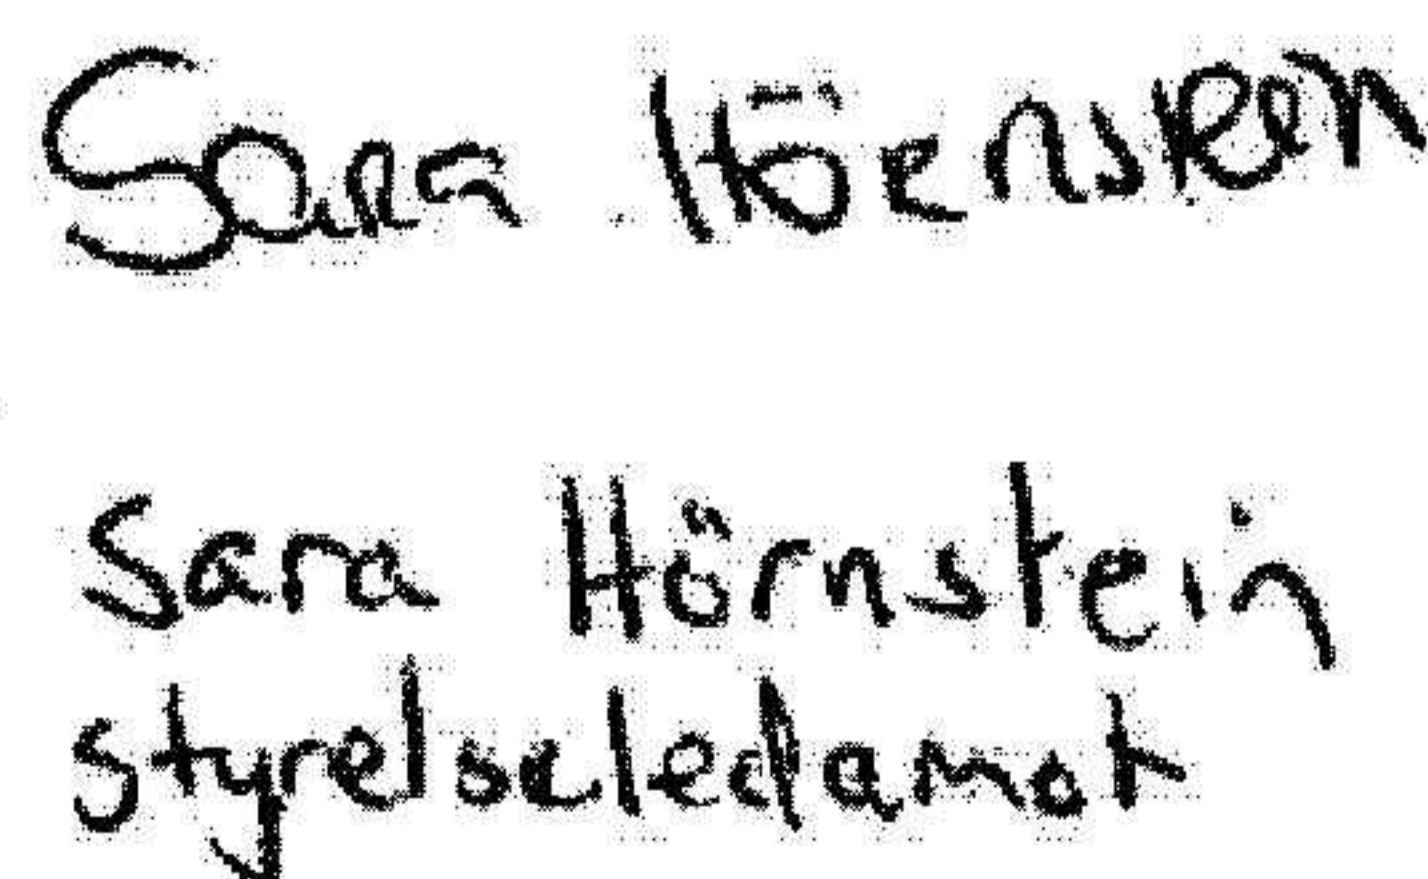 Sara Hörnstein
Sara Hörnstein
styrelseledamot